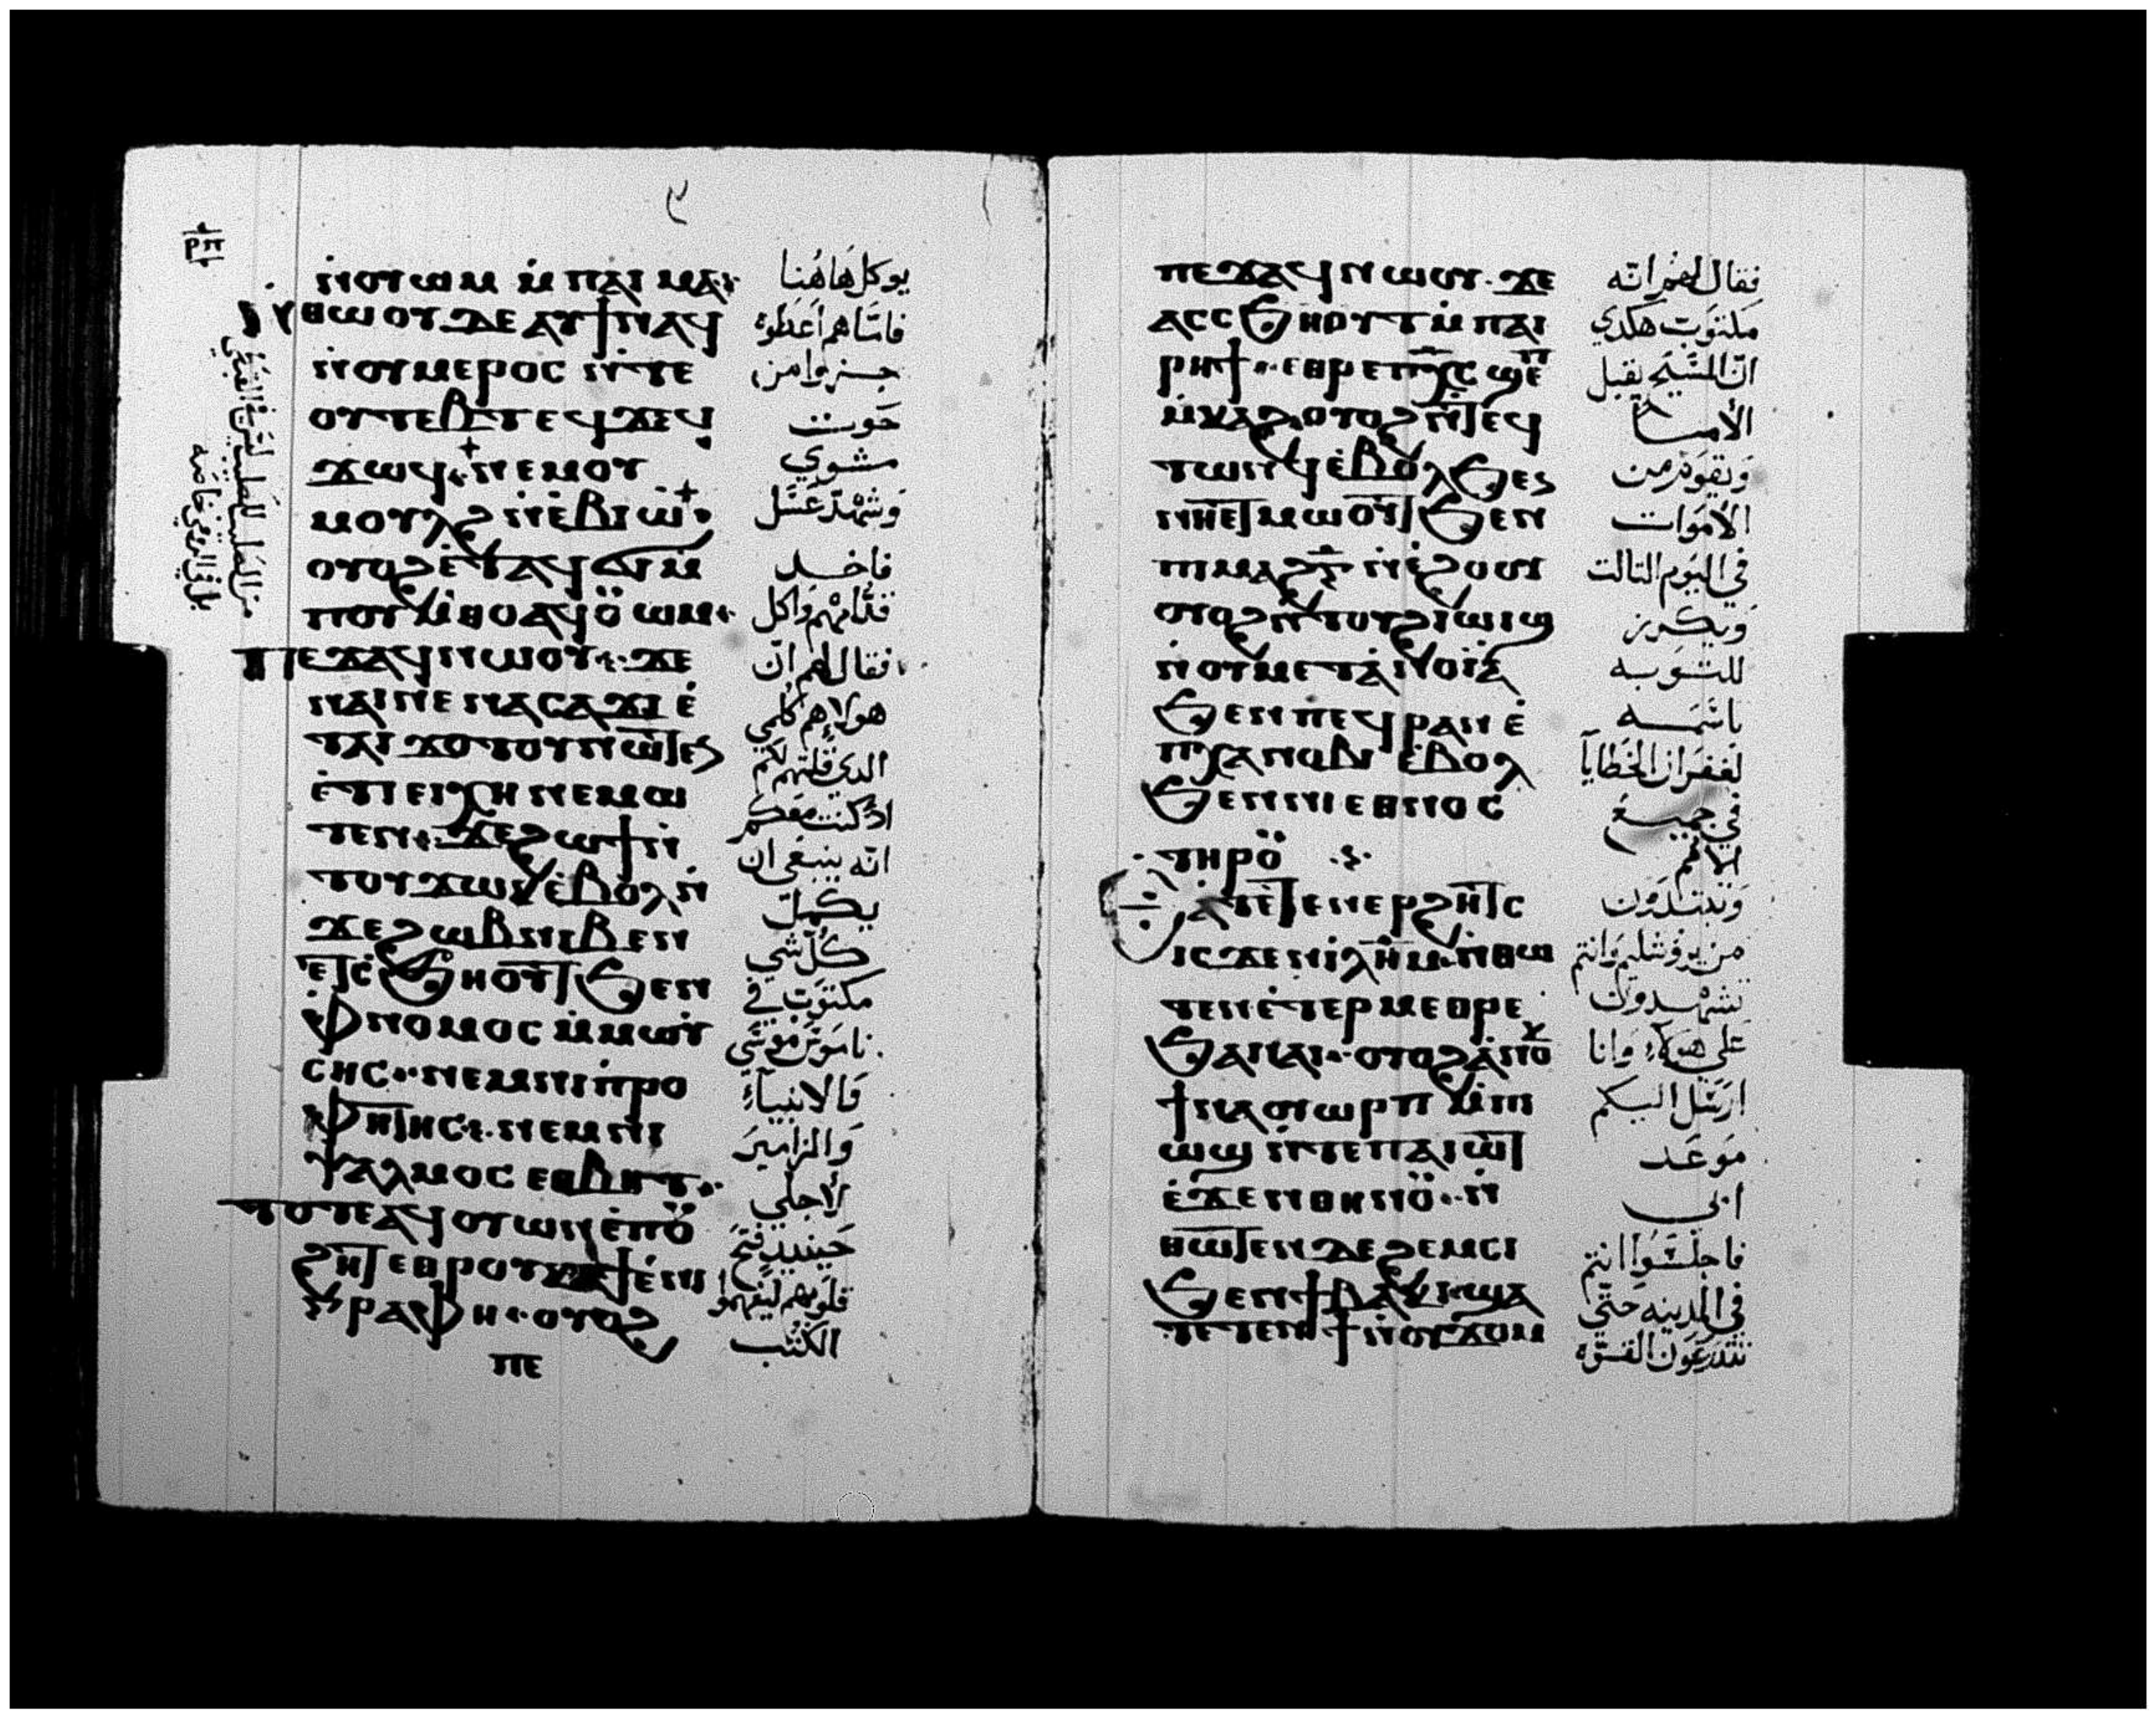 ⲛ̇ⲟⲩⲱⲙ ⲙ̇ ⲡⲁⲓ ⲙⲁ·
ⲛ̇ⲑⲱⲟⲩ ⲇⲉ ⲁⲩϯⲛⲁϥ
ⲛ̇ⲟⲩⲙⲉⲣⲟⲥ ⲛ̇ⲧⲉ
ⲟⲩⲧⲉⲃⲧ ⲉϥϫⲉϥ
ϫⲱϥ· ⲛⲉⲙ ⲟⲩ
ⲙⲟⲩⲗϩ ⲛ̇ⲉ̇ⲃⲓⲱ̇·
ⲟⲩⲟϩ ⲉ̇ⲧⲁϥϭⲓ ⲙ̇
ⲡⲟⲩⲙ̇ⲑⲟ ⲁϥⲟ̈ⲱⲙ·
ⲡⲉϫⲁϥ ⲛⲱⲟⲩ· ϫⲉ
ⲛⲁⲓ ⲛⲉ ⲛⲁⲥⲁϫⲓ ⲉ̇
ⲧⲁⲓϫⲟⲧⲟⲩ ⲛⲱⲧⲉⲛ
ⲉ̇ⲧⲓ ⲉⲓⲭⲏ ⲛⲉⲙⲱ
ⲧⲉⲛ· ϫⲉ ϩⲱϯ ⲛ̇
ⲧⲟⲩϫⲱⲕ ⲉ̇ⲃⲟⲗ ⲛ̇
ϫⲉ ϩⲱⲃ ⲛⲓⲃⲉⲛ
ⲉⲧⲥ̇ϧⲏⲟⲩⲧ ϧⲉⲛ
ⲫ̇ⲛⲟⲙⲟⲥ ⲙ̇ⲙⲱⲩ̇
ⲥⲏⲥ· ⲛⲉⲙ ⲛⲓⲡ̇ⲣⲟ
ⲫⲏⲧⲏⲥ· ⲛⲉⲙ ⲛⲓ
ⲯⲁⲗⲙⲟⲥ ⲉⲑⲃⲏⲧ·
ⲧⲟⲧⲉ ⲁϥⲟⲩⲱⲛ ⲉ̇ⲡⲟ̈
ϩⲏⲧ ⲉⲑⲣⲟⲩⲕⲁϯ ⲉ̇ⲛⲓ
ⲅⲣⲁⲫⲏ· ⲟⲩⲟϩ
ⲡⲉ
يوكل هاهنا
فامّا هم اعطوه
جزوا من
حوت
مشوي
وشهد عسَل
فاخد
قدّامهم واكل
فقال لهم انّ
هولاء هم كلمي
الدي قلتهم لكم
اد كنت معكم
انّه ينبغي ان
يكمل
كل شي
مكتوب في
ناموس موسَي
والانبياء
والمزامير
لاجلي
حينيد فتح
قلوبهم ليفهموا
الكتب
ⲡⲉϫⲁϥ ⲛⲱⲟⲩ· ϫⲉ
ⲁⲥⲥϧⲏⲟⲩⲧ ⲙ̇ⲡⲁⲓ
ⲣⲏϯ· ⲉⲑⲣⲉ ⲡⲭ̅ⲥ̅ ϣⲉⲡ
ⲙ̇ⲕⲁϩ ⲟⲩⲟϩ ⲛ̇ⲧⲉϥ
ⲧⲱⲛϥ ⲉ̇ⲃⲟⲗ ϧⲉⲛ
ⲛⲏⲉⲧⲙⲱⲟⲩⲧ ϧⲉⲛ
ⲡⲓⲙⲁϩⲅ̅ ⲛ̇ⲉ̇ϩⲟⲟⲩ
ⲟⲩⲟϩ ⲛ̇ⲧⲟⲩϩⲓⲱⲓϣ
ⲛ̇ⲟⲩⲙⲉⲧⲁ̇ⲛⲟⲓⲁ̇
ϧⲉⲛ ⲡⲉϥⲣⲁⲛ ⲉ̇
ⲡⲭⲁⲛⲟⲃⲓ ⲉ̇ⲃⲟⲗ
ϧⲉⲛ ⲛⲓⲉⲑⲛⲟⲥ
ⲧⲏⲣⲟ̈
ⲁⲧⲉⲧⲉⲛⲉⲣϩⲏⲧⲥ
ⲓⲥϫⲉⲛ ⲓ̇ⲗⲏ̅ⲙ̅· ⲛ̇ⲑⲱ
ⲧⲉⲛ ⲉ̇ⲧⲉⲣⲙⲉⲑⲣⲉ
ϧⲁ ⲛⲁⲓ· ⲟⲩⲟϩ ⲁ̇ⲛⲟⲕ
ϯⲛⲁⲟⲩⲱⲣⲡ ⲙ̇ⲡⲓ
ⲱϣ ⲛ̇ⲧⲉ ⲡⲁⲓⲱⲧ
ⲉ̇ϫⲉⲛ ⲑⲏⲛⲟ̈· ⲛ̇
ⲑⲱⲧⲉⲛ ⲇⲉ ϩⲉⲙⲥⲓ
ϧⲉⲛ ϯⲃⲁⲕⲓ· ϣⲁ
ⲧⲉⲧⲉⲛϯ ⲛ̇ⲟⲩϫⲟⲙ
فقال لهم انّه
مكتوب هكدي
انّ المسَيح يقبل
الألام
ويقوم من
الأموات
في اليوم التالت
ويكرز
للتوبه
باسَمه
لغفران الخطايا
في جميع
الأمم
وتبتدون
من يروشليم وانتم
تشهدون
علي هولاء وانا
ارسَل اليكم
موعد
ابي
فاجلسَوا انتم
في المدينه حتّي
تتدرعون القوّه